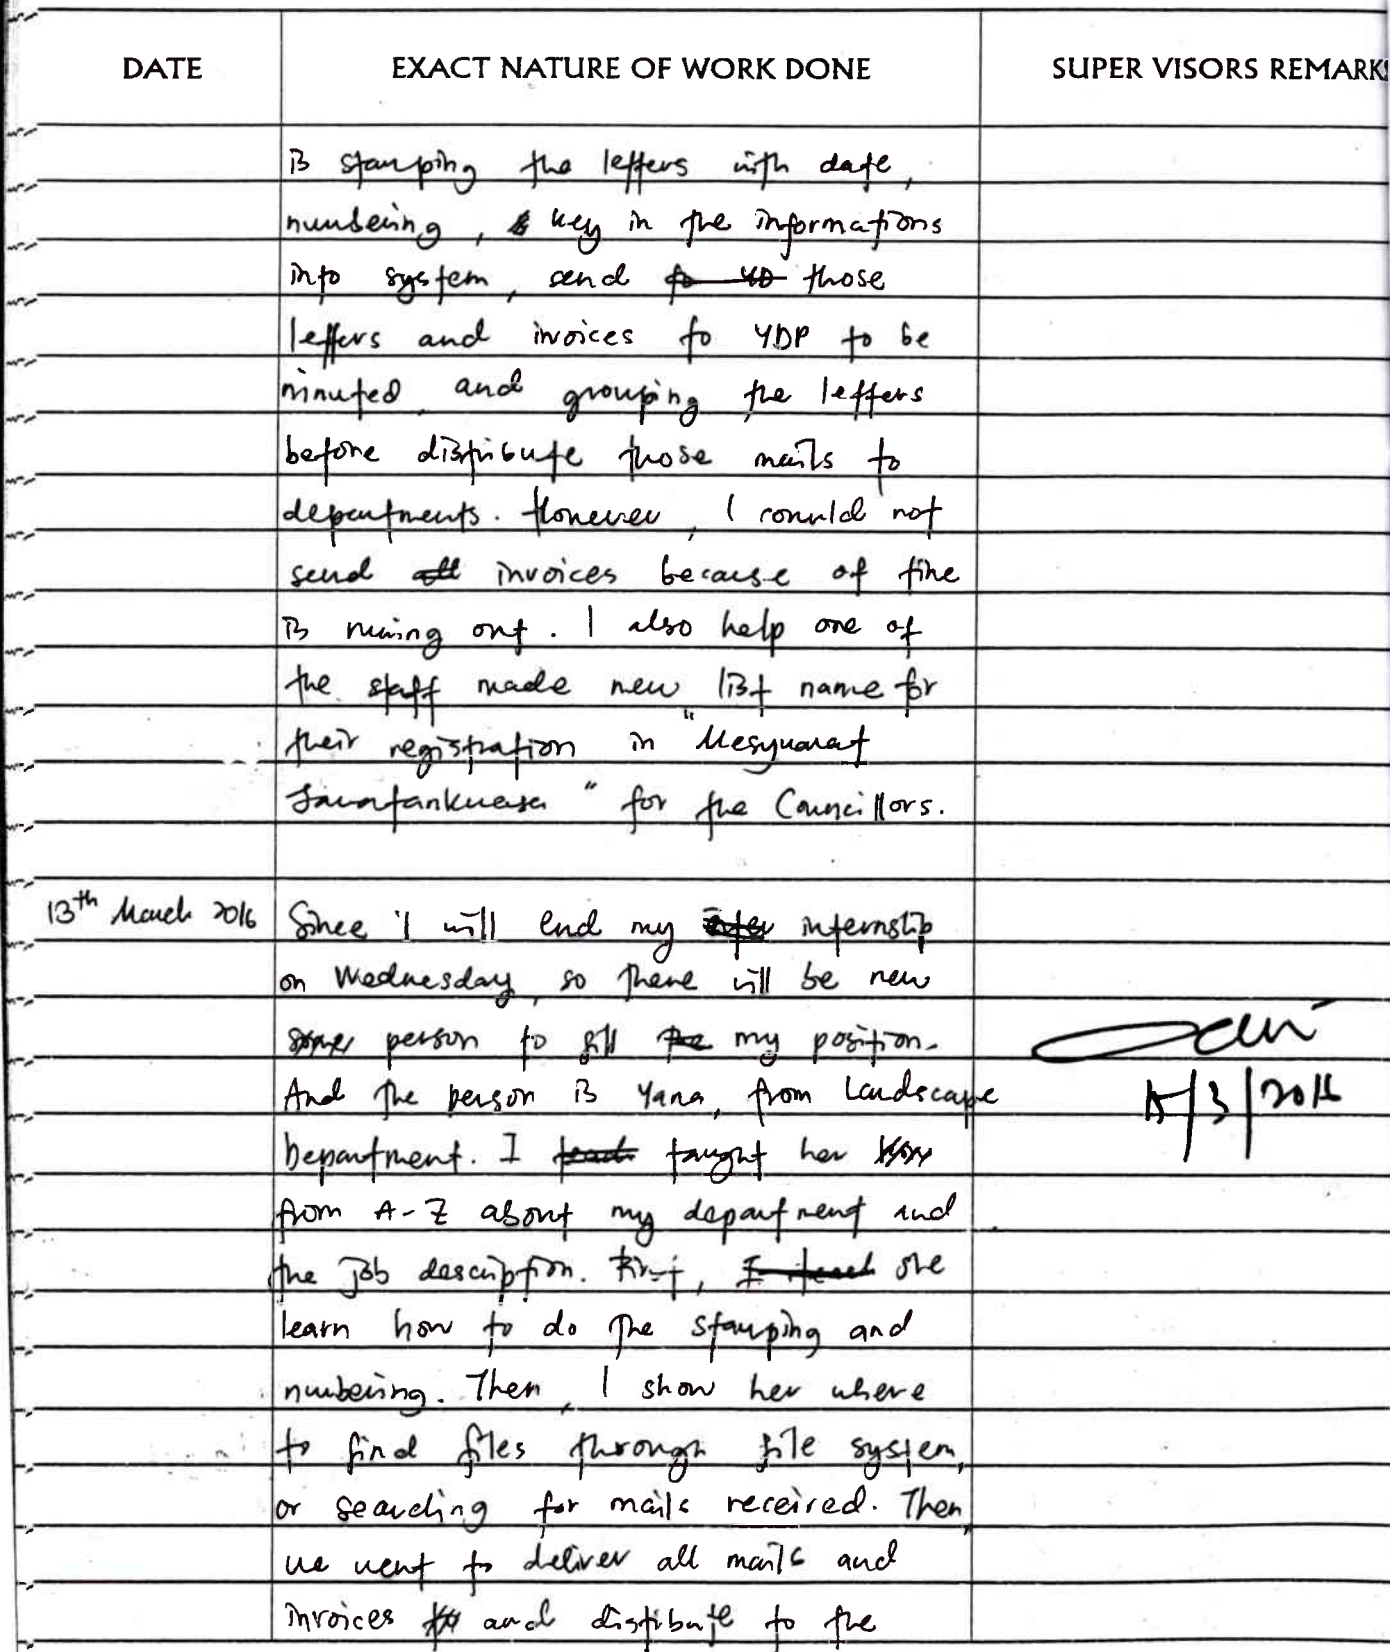 DATE EXACT NATURE OF WORK DONE SUPER VISORS REMARKS
is stamping the letters with date,
numbering, key in the informations
into system, send to YD those
letters and invoices to YDP to be
minuted and grouping the letters
before distribute those mails to
departments. However, I could not
send all invoices because of time
is runing out. I also help one of
the staff made new list name for
their registration in "Mesyuarat
Jawatankuasa" for the Councillors.
13th March 2016 Since I will end my internship
on Wednesday, so there will be new
some person to fill the my position.
And the person is Yana, from Landscape
Department. I teach taught her
from A-Z about my department and
the job description. First, I teach she
learn how to do the stamping and
numbering. Then, I show her where
to find files through file system,
or searching for mails received. Then,
we went to deliver all mails and
invoices and distibute to the
15/3/2016